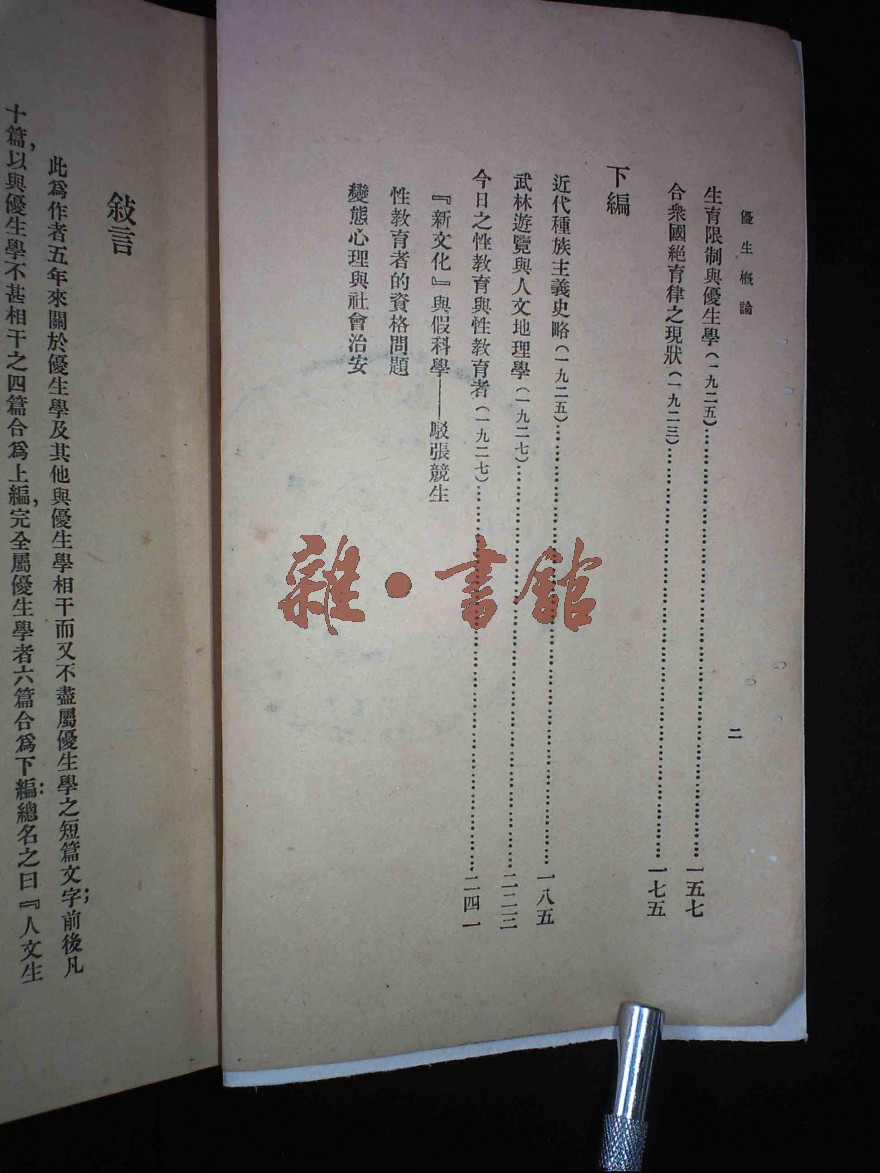 優生概論
二
生育限制與優生學(一九二五)……一五七
合衆國絕育律之現狀(一九二三)……一七五
下編
近代種族主義史略(一九二五)……一八五
武林遊覽與人文地理學(一九二七)……二二三
今日之性教育與性教育者(一九二七)……二四一
『新文化』與假科學——駁張競生
性教育者的資格問題
變態心理與社會治安
敍言
此爲作者五年來關於優生學及其他與優生學相干而又不盡屬優生學之短篇文字;前後凡
十篇,以與優生學不甚相干之四篇合爲上編,完全屬優生學者六篇合爲下編:總名之曰『人文生
雜·書館